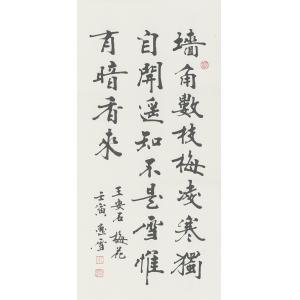 墻角數枝梅凌寒獨
自開遥知不是雪惟
有暗香來
王安石 梅花
壬寅 雪